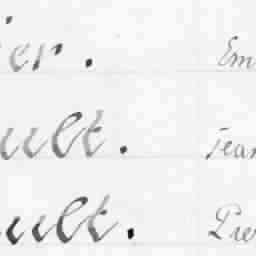 ier. Em
ult. Jean
ault. Pier